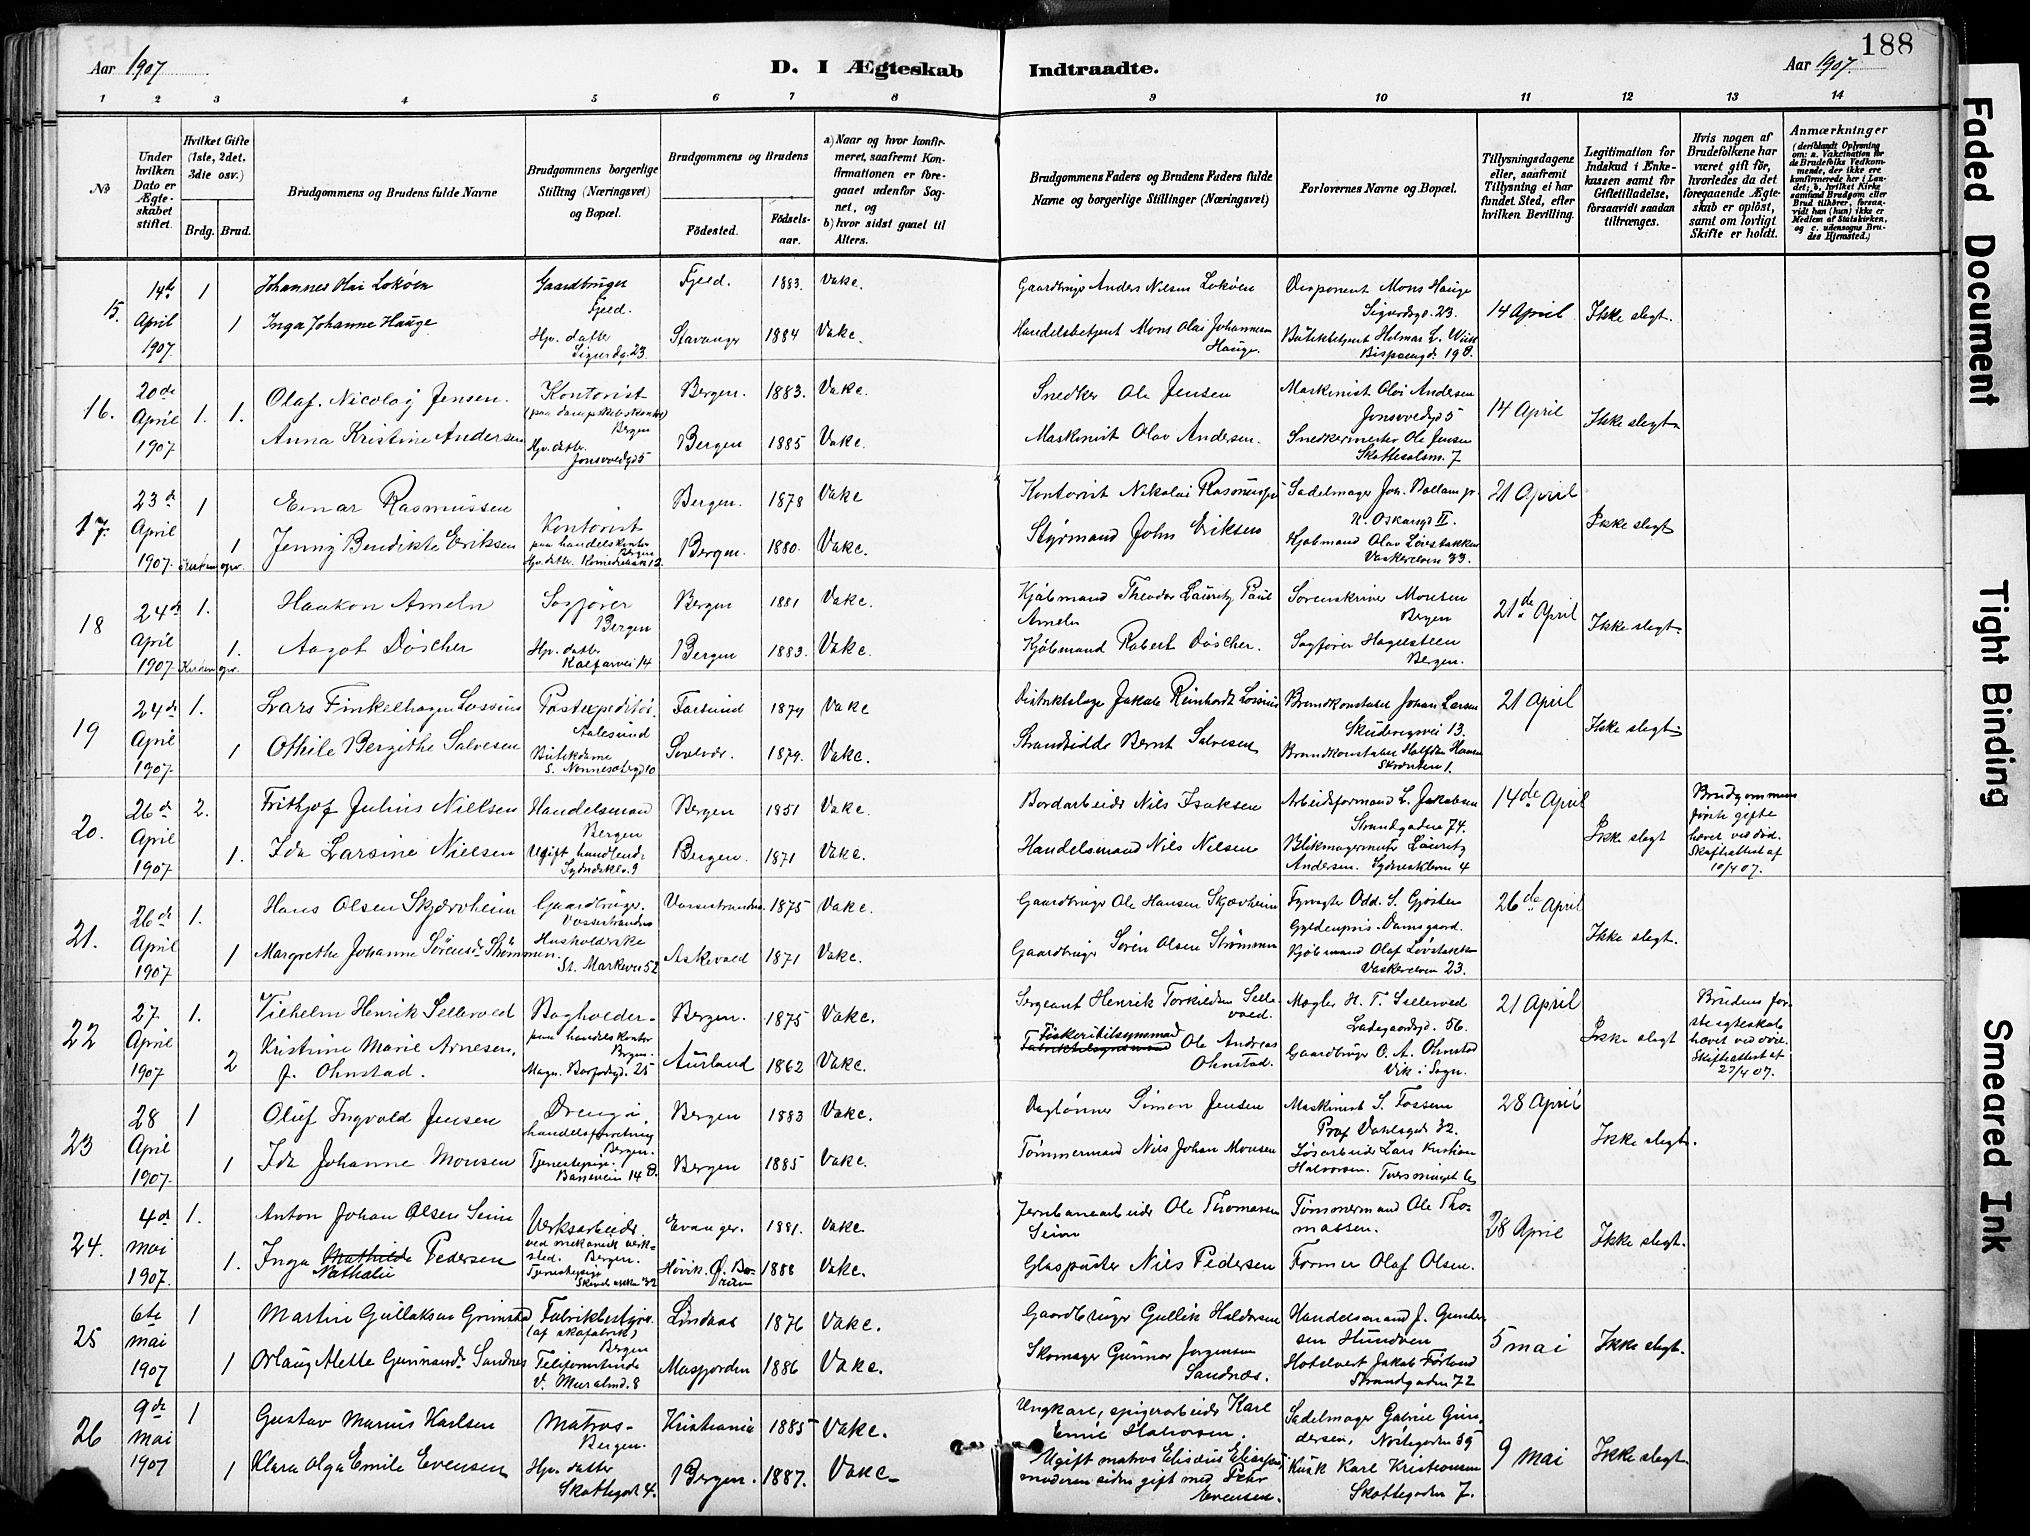 188
Aar 1907
D. I Ægteskab Indtraadte.
Aar 1907.
1 2 3 4 5 6 7 8 9 10 11 12 13 14
No
Under hvilken Dato er Ægteskabet stiftet.
Hvilket Gifte (1ste, 2det, 3die osv.)
Brdg. Brud.
Brudgommens og Brudens fulde Navne
Brudgommens borgerlige Stilling (Næringsvei) og Bopæl.
Brudgommens og Brudens
Födested.
Födselsaar.
a) Naar og hvor konfirmeret, saafremt Konfirmationen er foregaaet udenfor Sognet, og
b) hvor sidst gaaet til Alters.
Brudgommens Faders og Brudens Faders fulde Navne og borgerlige Stillinger (Næringsvei)
Forlovernes Navne og Bopæl.
Tillysningsdagene eller, saafremt Tillysning ei har fundet Sted, efter hvilken Bevilling.
Legitimation for Indskud i Enkekassen samt for Giftetilladelse, forsaavidt saadan tiltrænges.
Hvis nogen af Brudefolkene har været gift för, hvorledes da det foregaaende Ægteskab er oplöst, samt om lovligt Skifte er holdt.
Anmærkninger (deriblandt Oplysning om: a. Vakcination for de Brudefolks Vedkommende, der ikke ere konfirmerede her i Landet; b. hvilket Kirkesamfund Brudgom eller Brud tilhörer, forsaavidt han (hun) ikke er Medlem af Statskirken, og c. udensogns Brudes Hjemsted.)
15. 14de April 1907. 1 Johannes Olai Lokøen Gaardbruger Fjeld. Fjeld. 1883. Vakc. Gaardbruger Anders Nilsen Lokøen Disponent Mons Hauge Sigurdsgd. 23. 14 April Ikke slegt.
1 Inga Johanne Hauge Hp. datter Sigurdsg. 23. Stavanger 1884 Vakc. Handelsbetjent Mons Olai Johannesen Hauge. Bispeengd. 19 b.
16. 20de April 1907 1. 1. Olaf Nicolay Jensen. Kontorist Bergen Bergen. 1883. Vakc. Snedker Ole Jensen Maskinist Olai Andersen 14 April Ikke slegt
Anna Kristine Andersen Hp. datter. Bergen 1885 Vakc. Maskinist Olav Andersen. Snedkermester Ole Jensen Skottesalsm. 7
17. 23de April 1907. 1 Einar Rasmussen Kontorist paa handelskontor Bergen Bergen. 1878 Vakc Kontorist Nikolai Rasmussen Sadelmager Joh. N. Oskarsgd II. 21 April Ikke slegt
1 Jenny Bendikte Eriksen Hp. datter. 12. Bergen. 1880. Vakc. Styrmand John Eriksen Kjøbmand Olav Løvstakken 33.
18 24de April 1907. 1. Haakon Ameln Sagfører Bergen Bergen 1881 Vakc. Kjøbmand Theodor Lauritz Paul Ameln Sorenskriver Monsen Bergen 21de April Ikke slegt.
1. Aagot Döscher Hp. datter Kalfarvei 14 Bergen 1883. Vakc. Kjøbmand Robert Döscher. Sagfører Hagelsteen Bergen.
19 24de April 1907. 1. Lars Finkelhagen Lossius Postexpeditør. Aalesund Farsund 1879 Vakc Distriktslæge Jakob Reinhardt Lossius Brandkonstabel Johan Larsen Skudevigsvei 13. 21 April Ikke slegt
1 Othile Bergithe Salvesen Butikdame 10 Solvær. 1879. Vakc. Strandsidder Bernt Salvesen Brandkonstabel Halfdan Hansen Skrænten 1.
20. 26de April 1907 2. Frithjof Julius Nielsen Handelsmand Bergen Bergen 1851 Vakc. Bordarbeider Nils Isaksen Arbeidsformand L. Jakobsen Strandgaden 74. 14de April Ikke slegt Brudgommens første gifte hævet ved død. Skifteattest af 10/4 07.
1. Ida Larsine Nielsen Ugift, handlende Sydnæskl. 9 Bergen. 1871 Vakc. Handelsmand Nils Nielsen Blikmagermester Lauritz Andersen. Sydneskleven 4
21. 26de April 1907 1. Hans Olsen Skjærvheim Gaardbruger. Vossestranden Vossestranden. 1875 Vakc. Gaardbruger Ole Hansen Skjærvheim Fyrvogter Odd. S. Gjøsten Gyldenpris. Damsgaard. 26de April Ikke slegt.
1 Margrethe Johanne Sørensd. Strømmen. Husholderske St. Markevei 52 Askevold 1871 Vakc. Gaardbruger Søren Olsen Strømmen Kjøbmand Olaf Løvstakken 23.
22 27. April 1907 1. Vilhelm Henrik Sellevold Bogholder paa handelskontor Bergen. Bergen. 1875 Vakc. Sergeant Henrik Torkildsen Sellevold. Mægler H. T. Sellevold Ladegaardsgd. 56. 21 April Ikke slegt Brudens første egteskab hævet ved død. Skifteattest af 27/4 07.
2 Kristine Marie Arnesen, f. Ohnstad. Magn. Barfodsgd. 25 Aurland 1862 Vakc. Fiskeritilsynsmand Ole Andreas Ohnstad. Gaardbruger O. A. Ohnstad Vik i Sogn.
23 28 April 1907. 1 Oluf Ingvald Jensen Dreng i handelsforretning Bergen. Bergen 1883 Vakc. Daglønner Simon Jensen Maskinist S. Fossem Prof Dahlsgd. 32. 28 April Ikke slegt.
1 Ida Johanne Monsen Tjenestepige. 14 b. Bergen 1885 Vakc. Tømmermand Nils Johan Monsen Løsarbeider Lars Kristian Halvorsen.
24. 4de mai 1907. 1. Anton Johan Olsen Seim Verksarbeider. ved mekanisk verksted. Bergen. Evanger. 1881. Vakc. Jernbanearbeider Ole Thomassen Seim Tømmermand Ole Thomassen. 28 April Ikke slegt.
1. Inga Mathilde Nathalie Pedersen Tjenestepige 32 Høvik. Ø. Bærum 1888 Vakc. Glaspuster Nils Pedersen Former Olaf Olsen.
25 6te mai 1907 1 Martin Gullaksen Grimstad Fabrikbestyrer. (af skofabrik) Bergen Lindaas 1876 Vakc. Gaardbruger Gullik Haldorsen Handelsmand J. Gundersen Hundven 5 mai Ikke slegt.
1 Orlaug Alette Gunnarsd. Sandnes V. Muralmd. 8 Masfjorden 1886 Vakc. Skomager Gunnar Jørgensen Sandnæs. Hotelvert Jakob Førland Strandgaden 72
26 9de mai 1907 1 Gustav Marius Karlsen Matros. Bergen. Kristiania 1885 Vakc. Ungkarl, spigerarbeider Karl Emil Halvorsen. Sadelmager Gabriel Gundersen, Nøstegaden 39 9 mai Ikke slegt.
1 Klara Olga Emilie Evensen Hp. datter Skottegad. 4. Bergen. 1887. Vakc. Ugift matros Elisæus Elisæussen, moderen siden gift med Peder Evensen. Kusk Karl Kristiansen Skottegaden 7.
Faded Document
Tight Binding
Smeared Ink